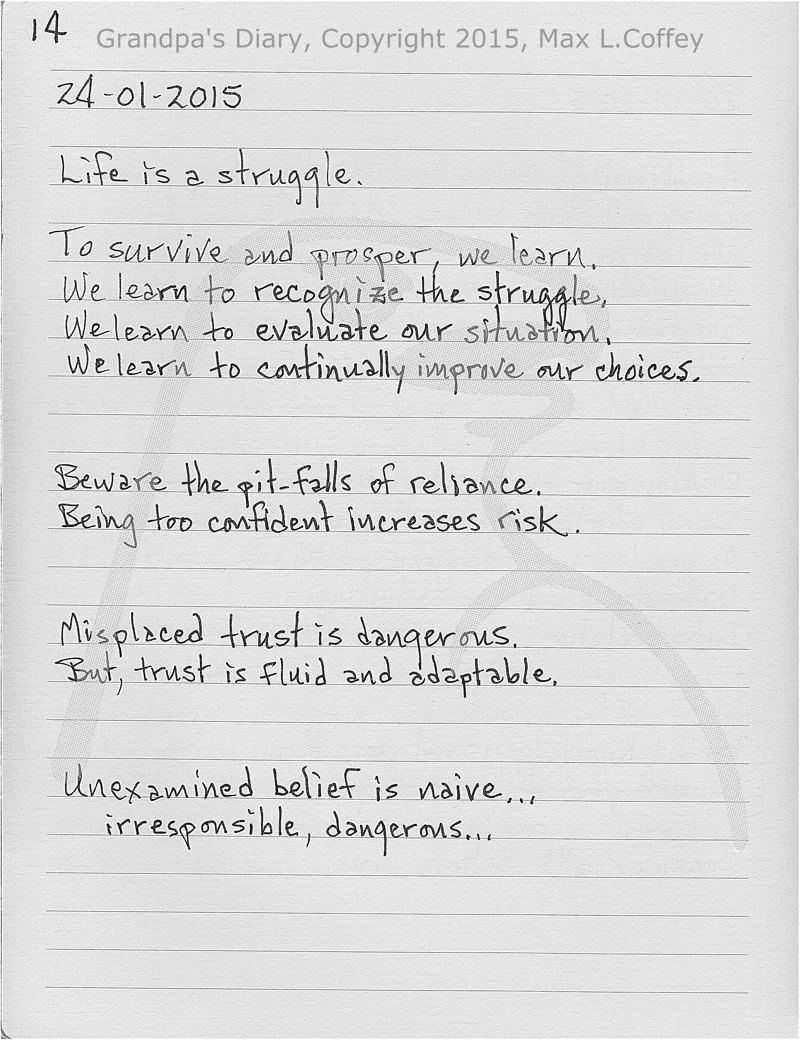 14
Grandpa's Diary, Copyright 2015, Max L.Coffey
24-01-2015
Life is a struggle.
To survive and prosper, we learn.
We learn to recognize the struggle.
We learn to evaluate our situation.
We learn to continually improve our choices.
Beware the pit-falls of reliance.
Being too confident increases risk.
Misplaced trust is dangerous.
But, trust is fluid and adaptable.
Unexamined belief is naive...
irresponsible, dangerous...